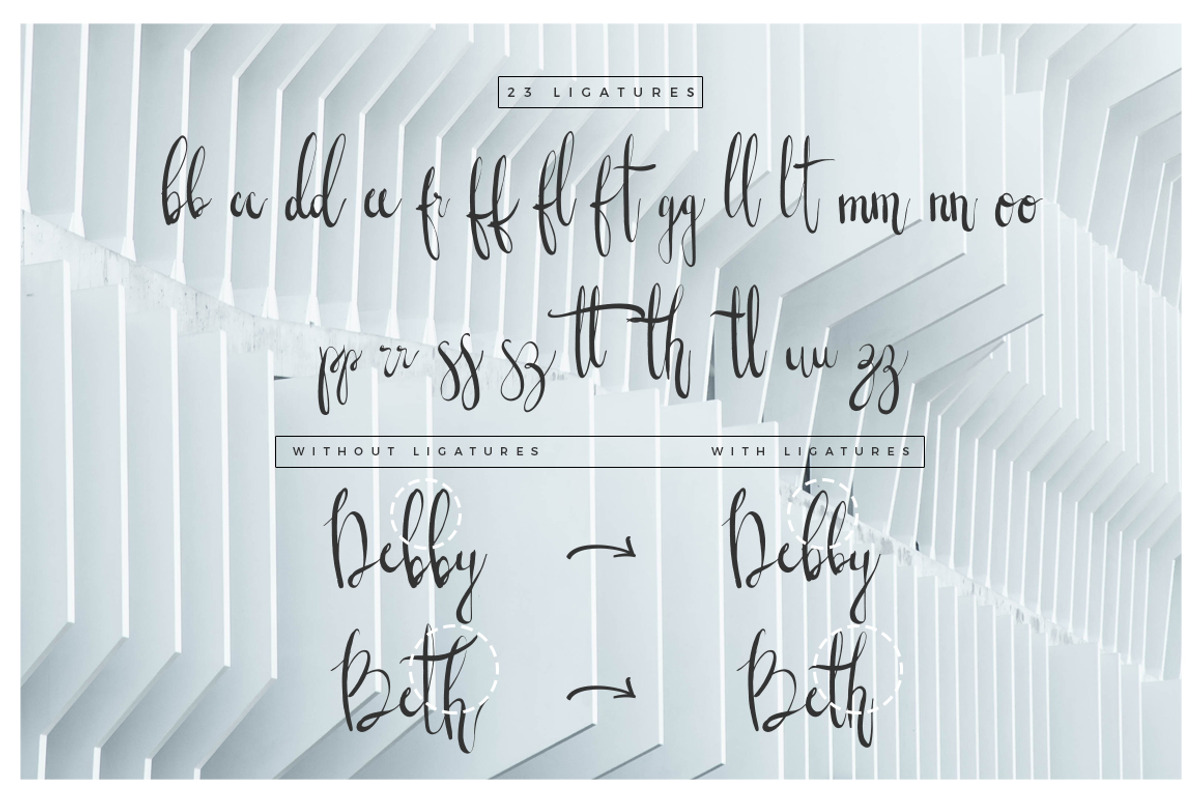 23 LIGATURES
bb cc dd ee fr ff fl ft gg ll lt mm nn oo
pp rr ss sz tt th tl uu zz
WITHOUT LIGATURES WITH LIGATURES
Debby Debby
Beth Beth